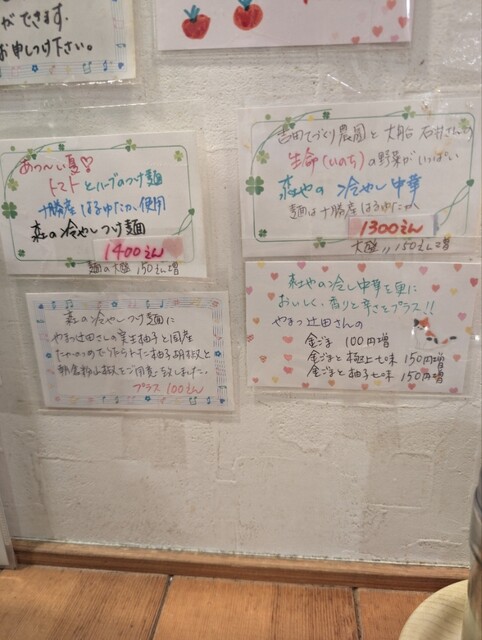 ができます。
お申しつけ下さい。
あつ〜い夏♡
トマトとハーブのつけ麺
十勝産はるゆたか使用
森の冷やしつけ麺
1400えん
麺の大盛 150えん増
吉田てづくり農園と大船 石井さんの
生命(いのち)の野菜がいっぱい
森やの 冷やし中華
麺は十勝産はるゆたか
1300えん
大盛〃150えん増
森の冷やしつけ麺に
やまつ辻田さんの実生柚子と国産
たかのつめで
柚子胡椒と
をご用意致しました。
プラス100えん
森やの冷し中華を更に
おいしく、香りと辛さをプラス!!
やまつ辻田さんの
金ごま 100円増
金ごまと極上七味 150円増
金ごまと柚子七味 150円増